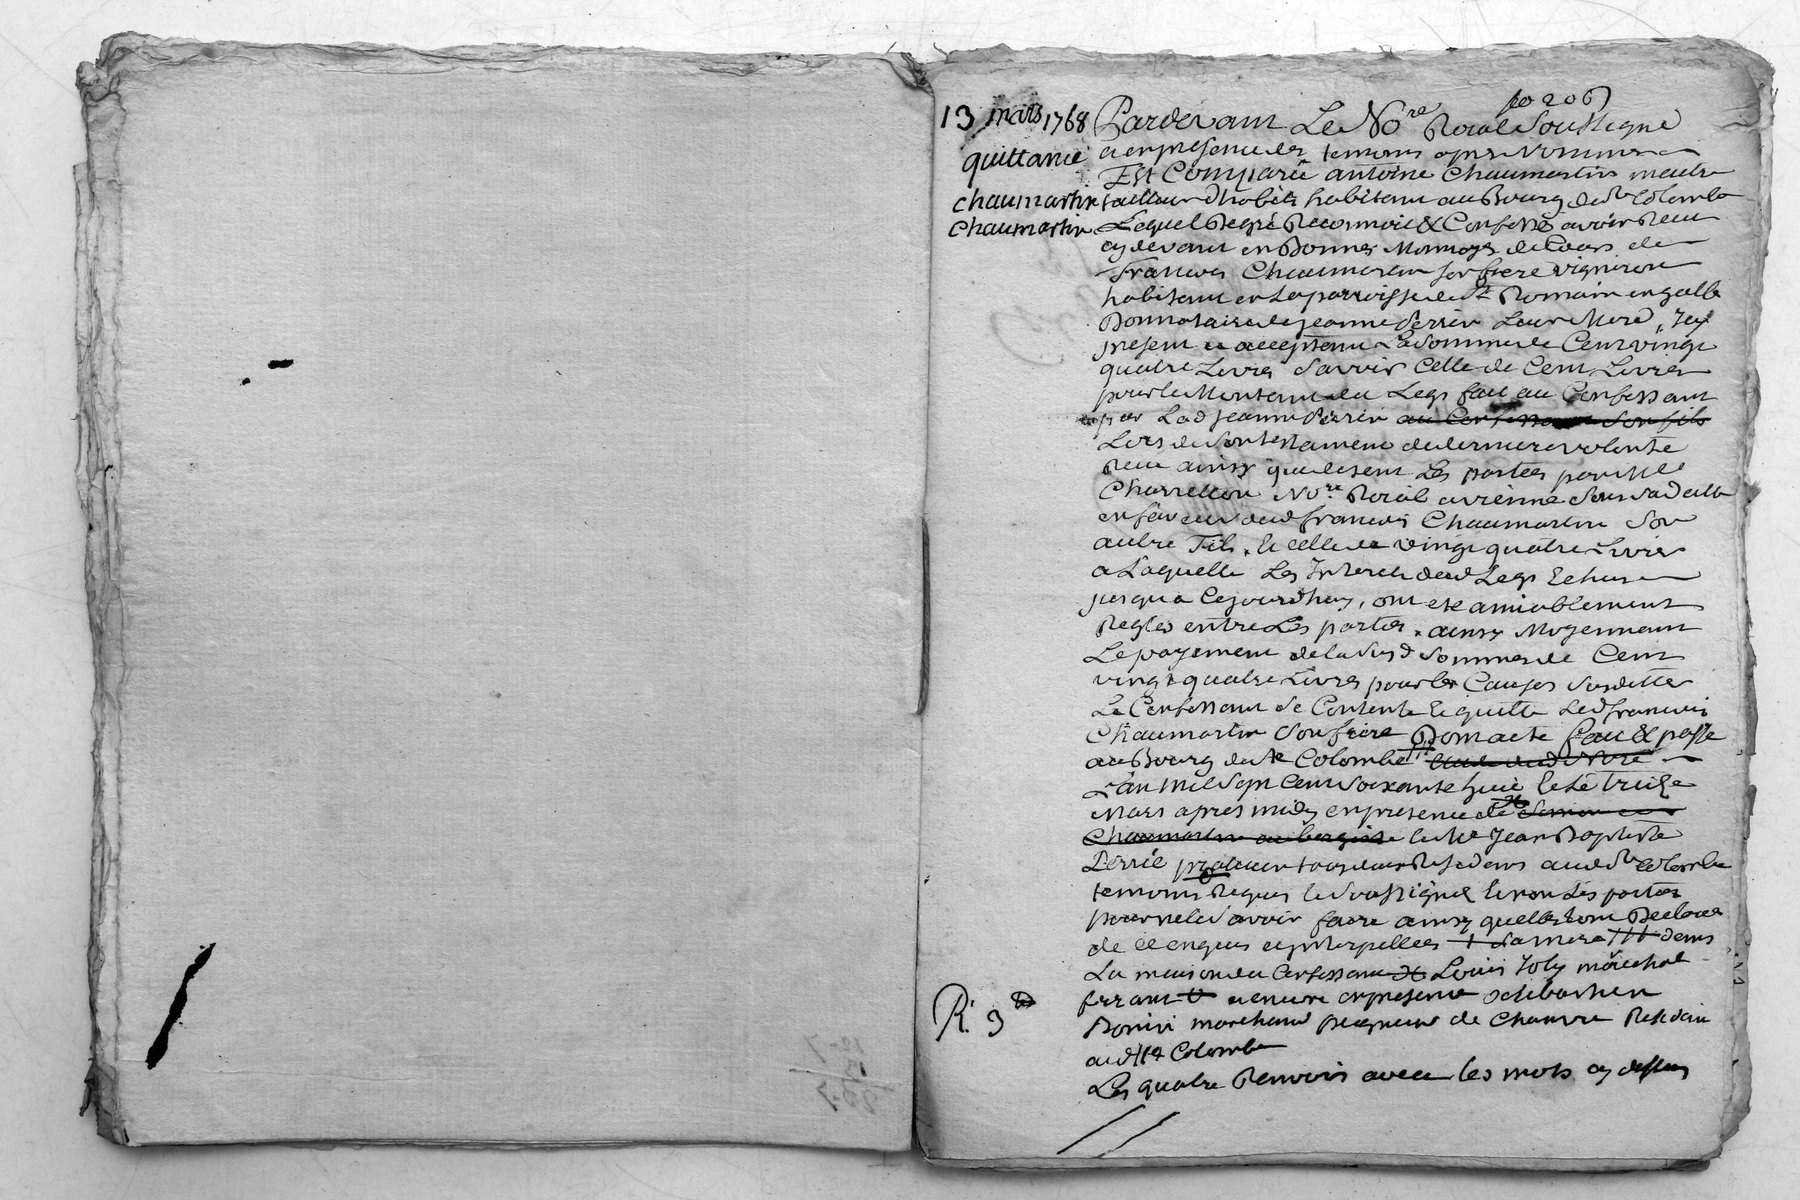 fo 206
13 mars 1768
quittance
chaumartin
Chaumartin
Pardevant Le No.re Roial Soussigné
et en presence des temoins apres nommes
Est Comparu antoine Chaumartin maitre
tailleur dhabits habitant au Bourg de Ste Colombe
Lequel de gré Reconnoit & Confesse avoir Receu
cy devant en Bonnes Monnoyes de Cours de
francois Chaumartin son frere vigneron
habitant en la parroisse de St Romain en galle
Donnataire de jeanne Perrin Leur Mere, Icy
present et acceptant La Somme de Cent vingt
quatre Livres Savoir Celle de Cent Livres
pour le Montant du Legs fait au Confessant
par Lad jeanne Perrin au Confessant Son fils
Lors de Son testament de derniere volonté
Receu ainsy que disent Les parties par Me
Charreton No.re Roial a vienne Sous Sa datte
en faveur dud francois Chaumartin Son
autre Fils, & celle de vingt quatre Livres
a Laquelle Les Interets dud Legs Echus
jusqu'a Cejourdhuy, ont ete amiablement
Regles entre Les parties, ainsy Moyennant
Le payement de la Susd Somme de Cent
vingt quatre Livres pour les Causes Susdittes
Le Confessant Se Contente & quitte Led francois
Chaumartin Son frere Dont acte fait & passé
au Bourg de Ste Colombe Etude dud Nore
L'an Mil Sept Cent Soixante huit & Le treize
Mars apres midy en presence de Simon
Chaumartin aubergiste & de Me Jean Baptiste
Perrié praticien tous deux Residens aud Ste Colombe
temoins Requis & Soussignés & non Les parties
pour ne le Savoir faire ainsy quelles ont Declaré
de ce enquis et interpellées + Sa mere /// dans
La maison du Confessant Louis Joly maréchal
ferrant et encore en presence de Sebastien
Bonin marchand peigneur de chanvre Residant
aud Ste Colombe
Les quatre Renvois avec les mots cy dessus
R. 3